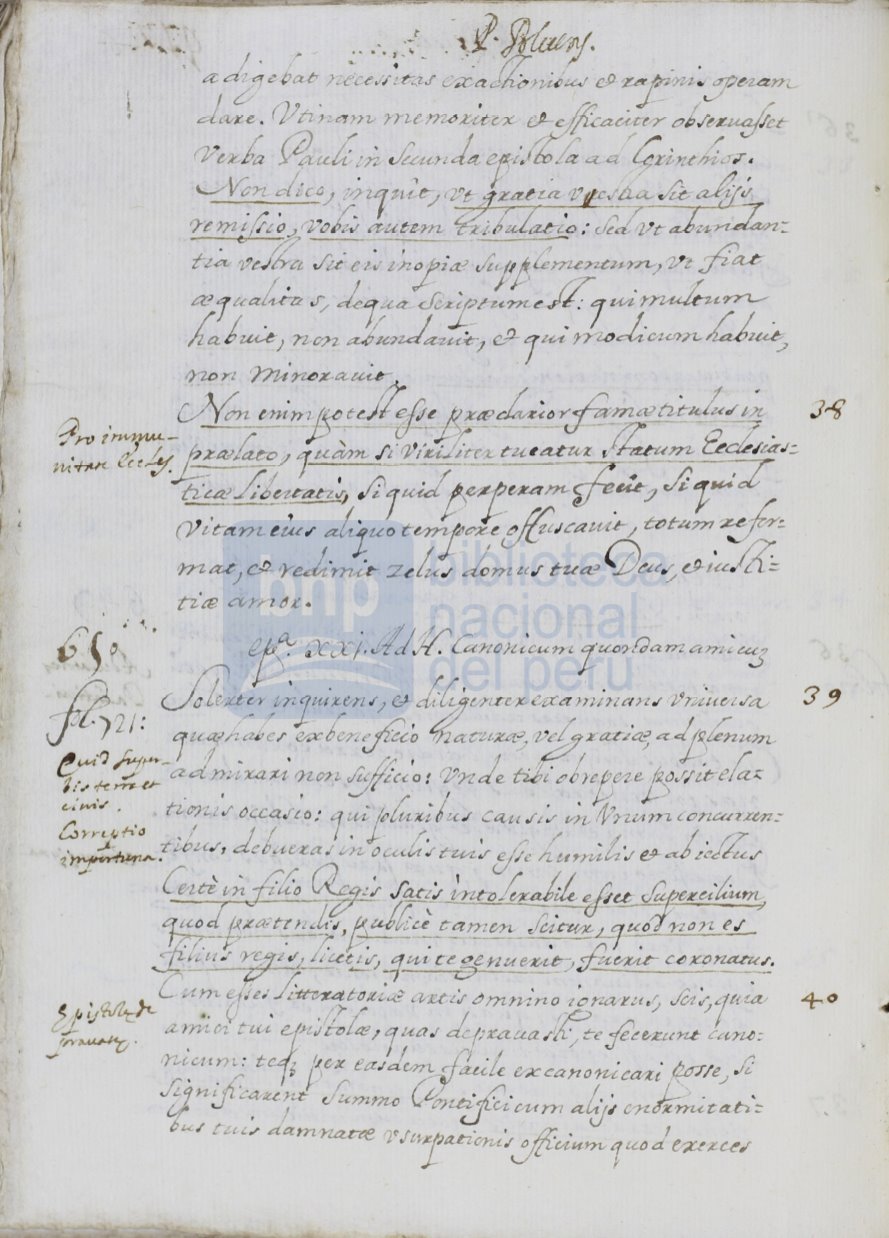 P. Blesens.
adigebat necessitas exactionibus et rapinis operam
dare. Utinam memoriter et efficaciter obseruasset
Verba Pauli in Secunda epistola ad Corinthios.
Non dico, inquit, vt gratia vestra sit alijs
remissio, vobis autem tribulatio: sed vt abundan=
tia vestra sit eis inopiæ supplementum, vt fiat
æqualitas, de qua scriptum est: qui multum
habuit, non abundauit, et qui modicum habuit,
non minorauit.
Non enim potest esse præclarior famæ titulus in 38
Pro immu-
nitate Eccles.
prælato, quàm si viriliter tueatur statum Ecclesias=
ticæ libertatis, si quid perperam fecit, si quid
vitam eius aliquo tempore offuscauit, totum refor=
mat, et redimit zelus domus tuæ Deus, et iusti=
tiæ amor.
650
epᵃ. xxj. Ad H. Canonicum quondam amicuz
Solerter inquirens, et diligenter examinans vniuersa 39
fol. 721:
quæ habes ex beneficio naturæ, vel gratiæ, ad plenum
admirari non sufficio: vnde tibi obrepere possit ela=
Quid super-
bis terra et
cinis.
tionis occasio: qui pluribus causis in vnum concurren=
Correptio
importuna.
tibus, debueras in oculis tuis esse humilis et abiectus
Certè in filio Regis satis intolerabile esset supercilium,
quod prætendis, publicè tamen scitur, quod non es
filius regis, licet is, qui te genuerit, fuerit coronatus.
Cum esses litteratoriæ artis omnino ignarus, scis, quia 40
Epistolæ de
prauatæ.
amici tui epistolæ, quas deprauasti, te fecerunt cano=
nicum: teq; per easdem facile excanonicari posse, si
significarent Summo Pontifici cum alijs enormitati=
bus tuis damnatæ vsurpationis officium quod exerces
bnp biblioteca
nacional
del perú